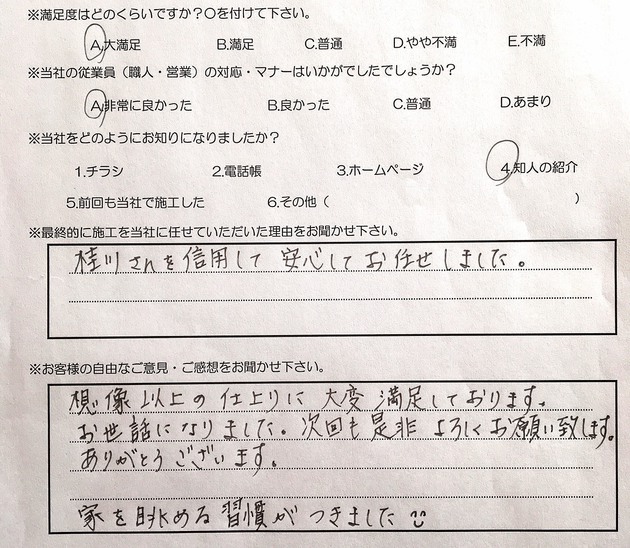 ※満足度はどのくらいですか?〇を付けて下さい。
A.大満足 B.満足 C.普通 D.やや不満 E.不満
※当社の従業員（職人・営業）の対応・マナーはいかがでしたでしょうか?
A.非常に良かった B.良かった C.普通 D.あまり
※当社をどのようにお知りになりましたか?
1.チラシ 2.電話帳 3.ホームページ 4.知人の紹介
5.前回も当社で施工した 6.その他（ ）
※最終的に施工を当社に任せていただいた理由をお聞かせ下さい。
桂川さんを信用して 安心して お任せしました。
※お客様の自由なご意見・ご感想をお聞かせ下さい。
想像以上の仕上りに 大変 満足しております。
お世話になりました。次回も是非 よろしくお願い致します。
ありがとうございます。
家を眺める習慣がつきました